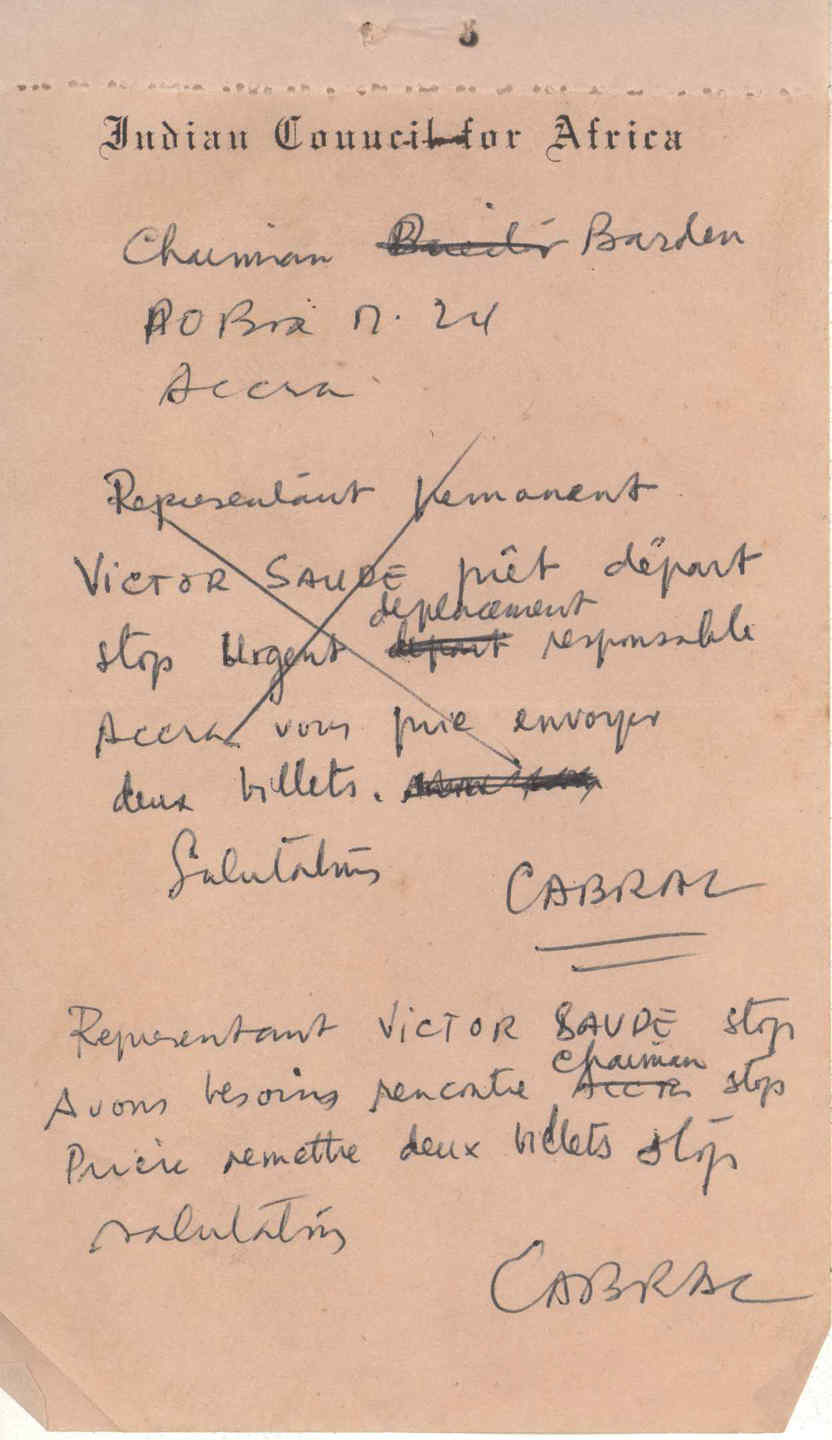 Indian Council for Africa
Chairman Barden
PO Box M. 24
Accra
Representant permanent
VICTOR SAUDE prêt départ
déplacement
stop Urgent départ responsable
Accra vous prie envoyer
deux billets.
Salutations
CABRAL
Representant VICTOR SAUDE stop
chairman
Avons besoins rencontre Accra stop
Prière remettre deux billets stop
salutations
CABRAL